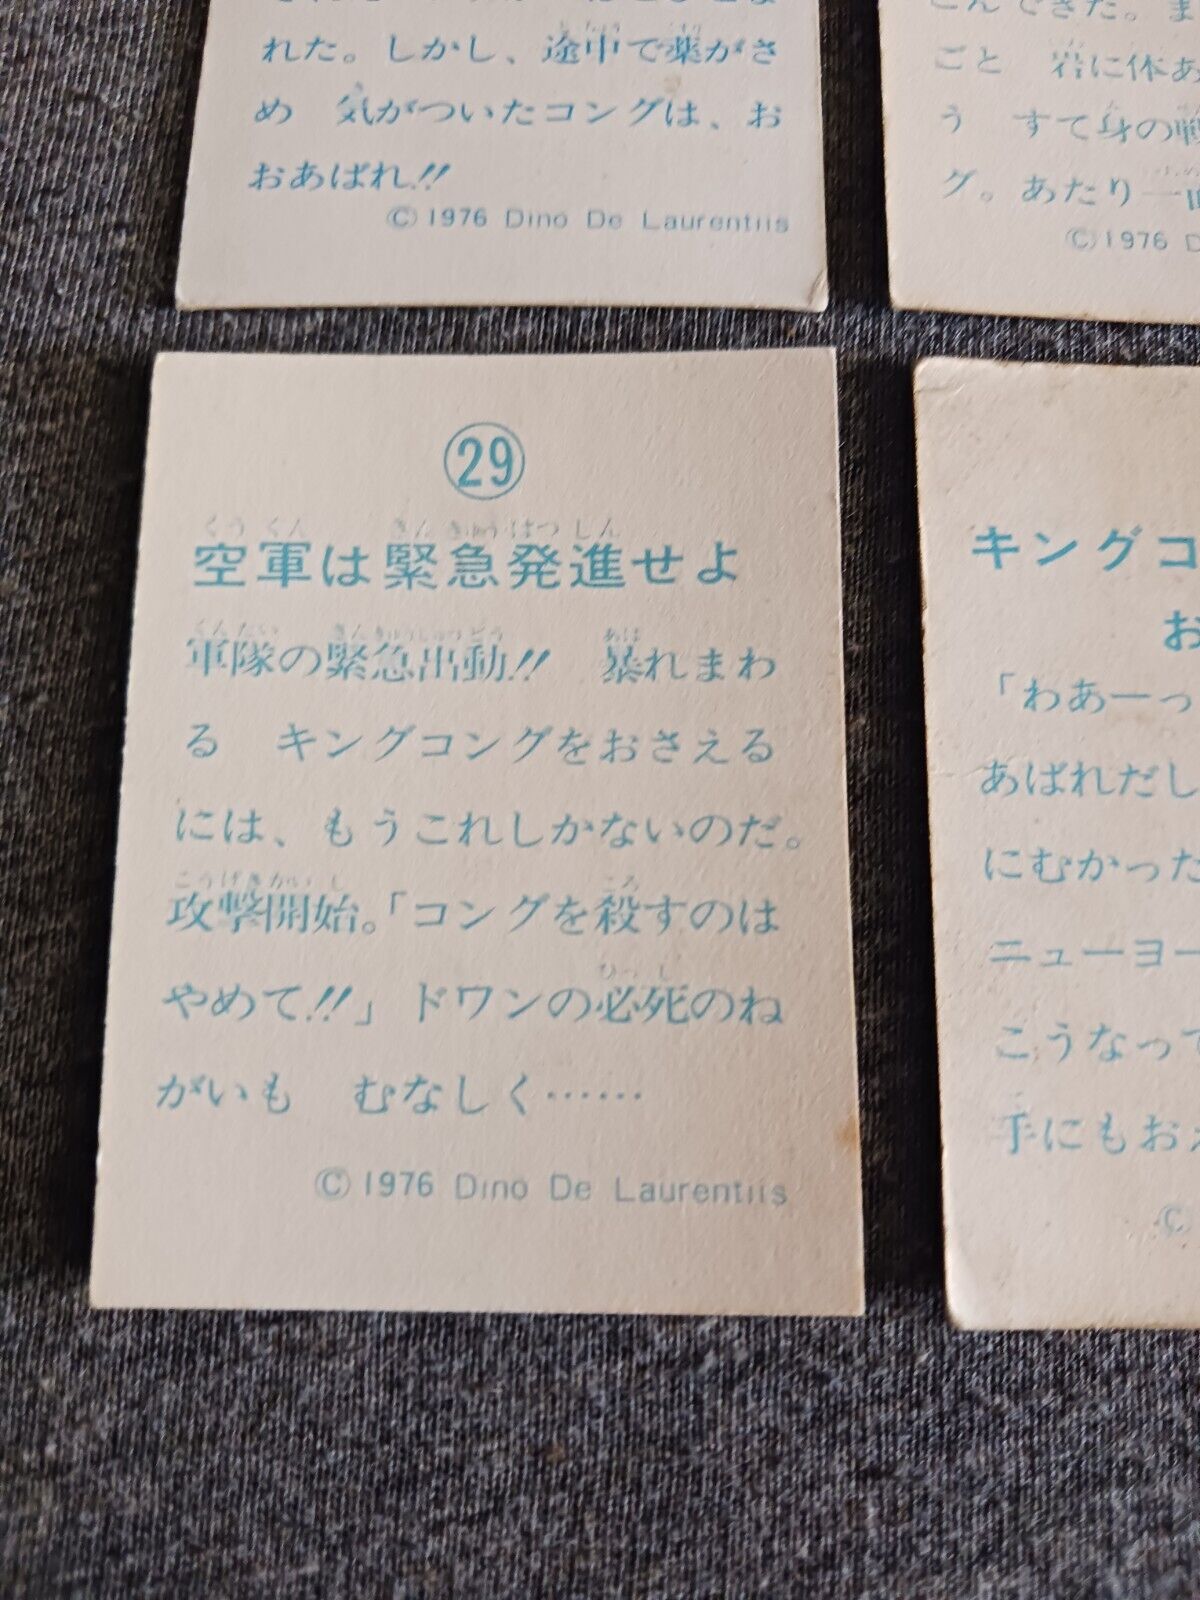 れた。しかし、途中で薬がさ
め　気がついたコングは、お
おあばれ!!
Ⓒ1976 Dino De Laurentiis
こんできた。ま
ごと　岩に体あ
う　すて身の戦
グ。あたり一面
Ⓒ1976 D
㉙
空軍は緊急発進せよ
軍隊の緊急出動!!　暴れまわ
る　キングコングをおさえる
には、もうこれしかないのだ。
攻撃開始。「コングを殺すのは
やめて!!」ドワンの必死のね
がいも　むなしく……
Ⓒ1976 Dino De Laurentiis
キングコ
お
「わあーっ
あばれだし
にむかった
ニューヨー
こうなって
手にもおえ
Ⓒ